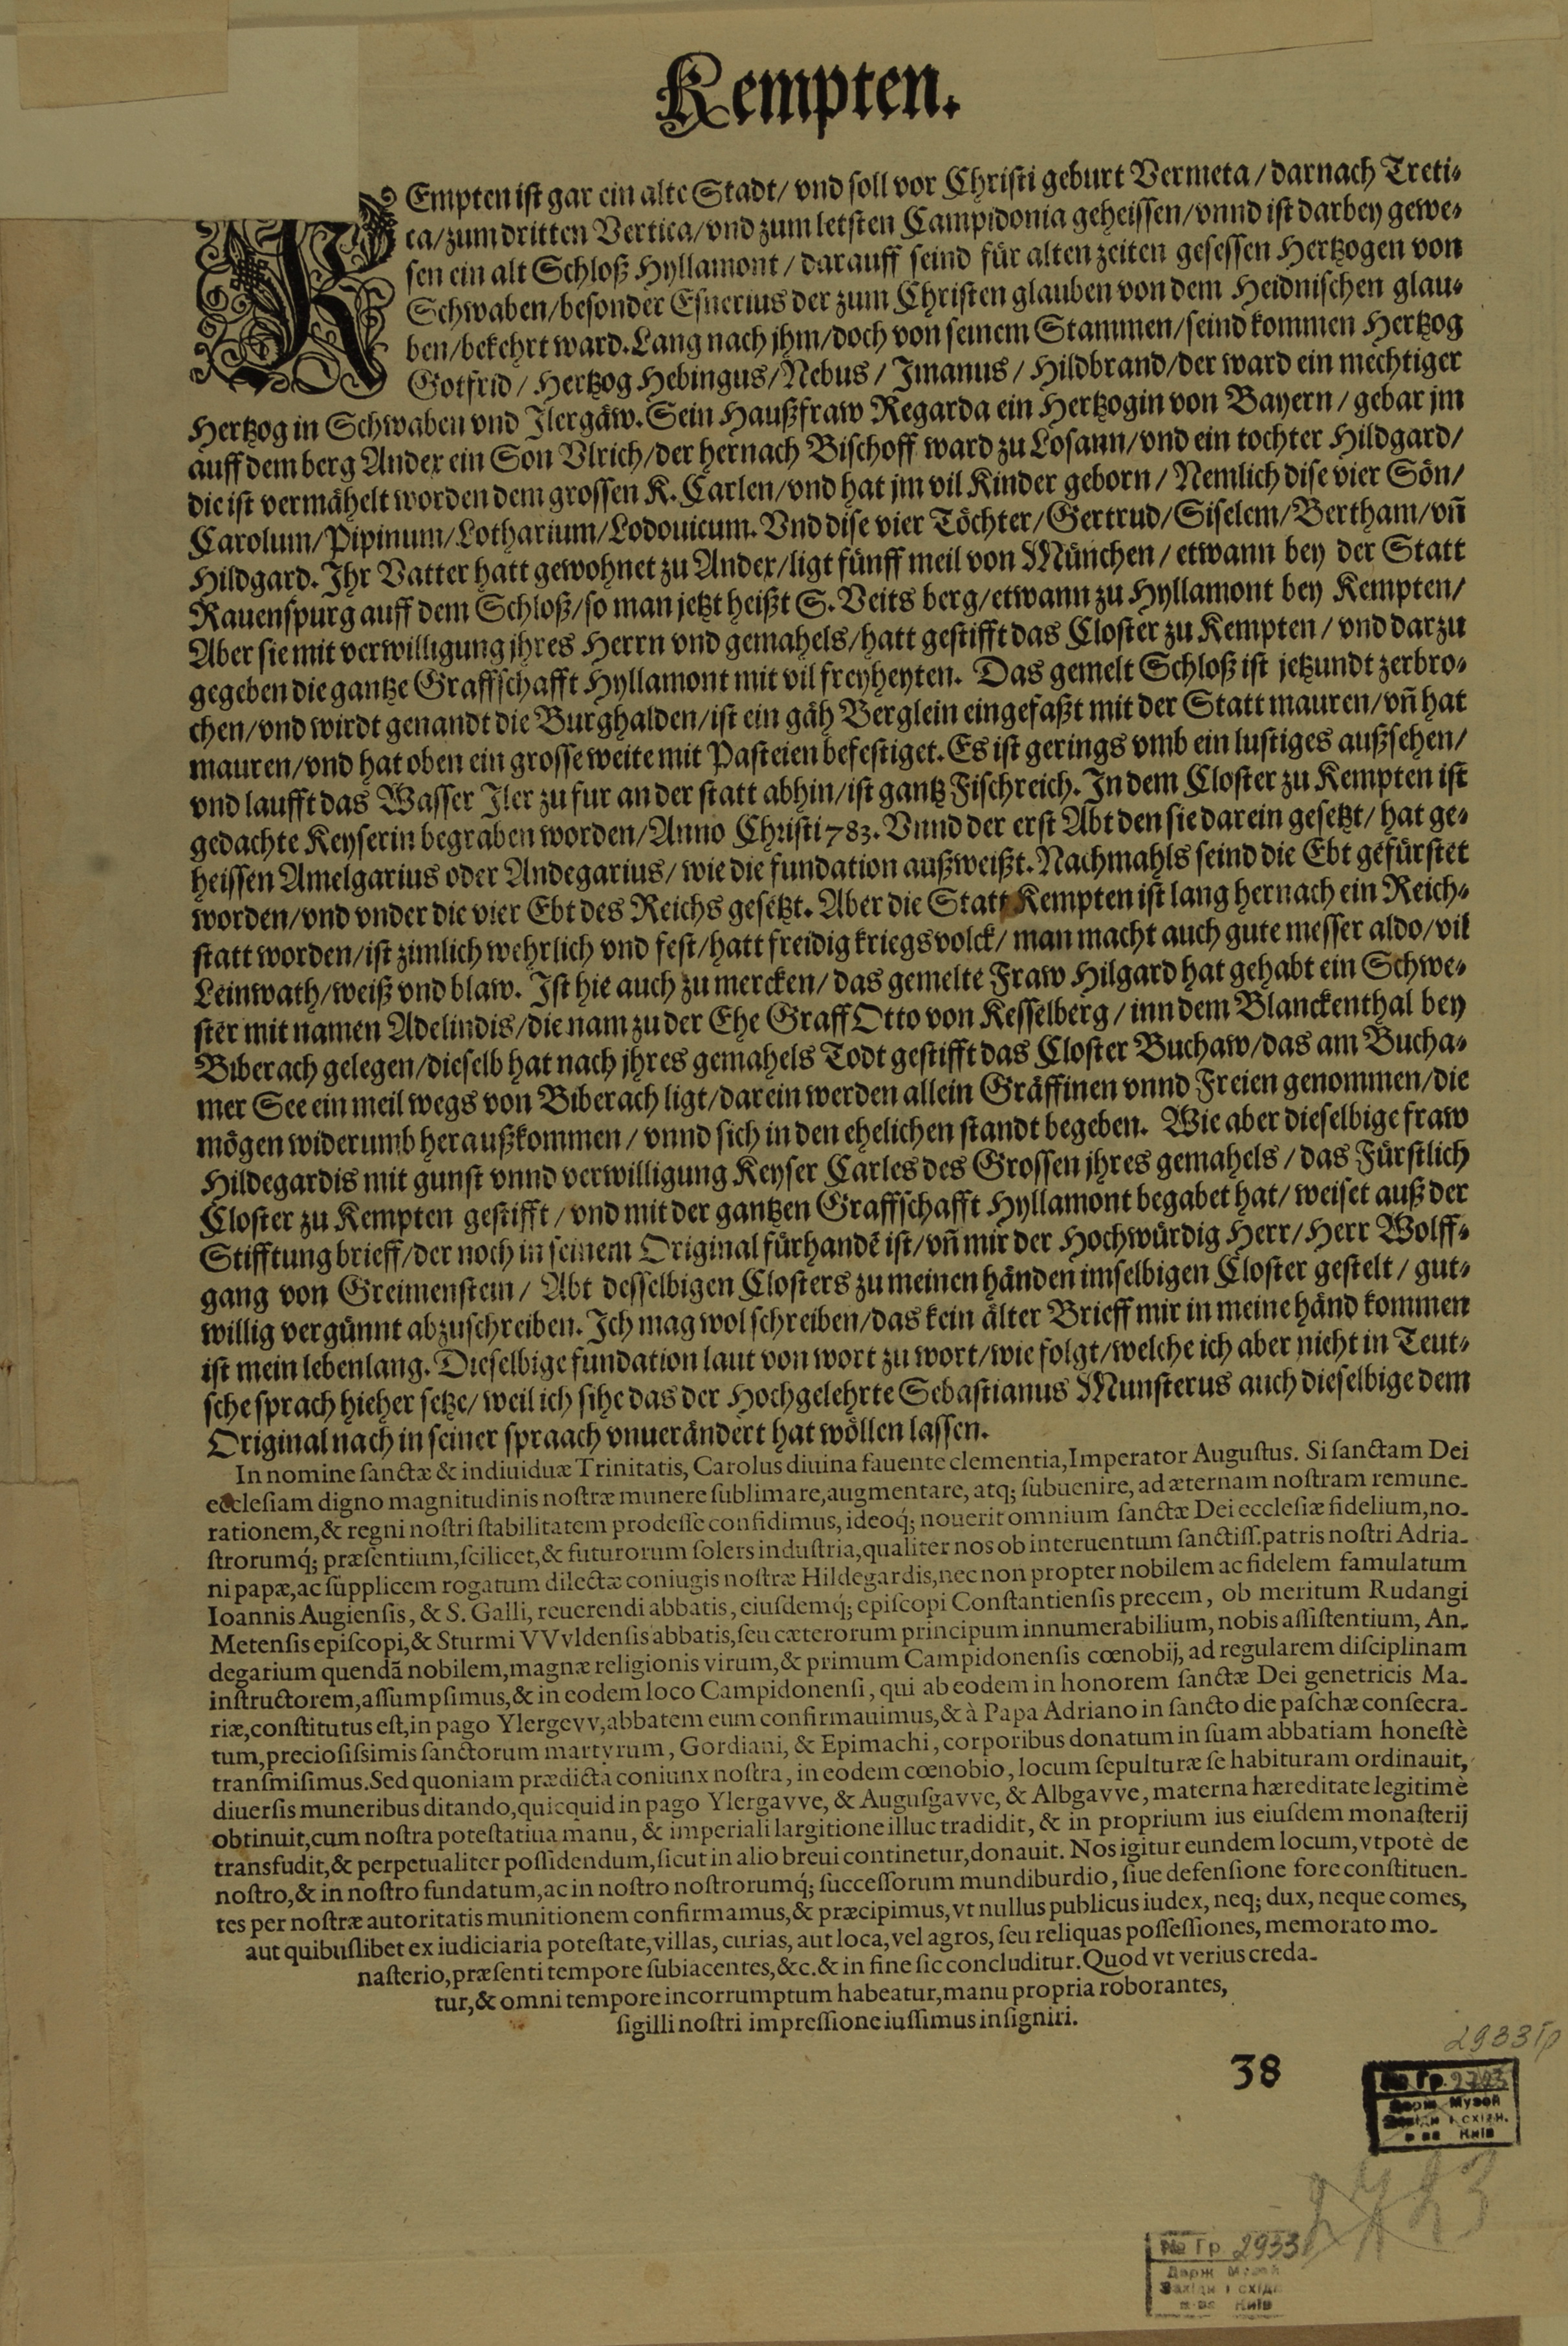 Kempten.
KEmpten ist gar ein alte Stadt/ vnd soll vor Christi geburt Vermeta/ darnach Treti⸗
ca/ zum dritten Vertica/ vnd zum letsten Campidonia geheissen/ vnnd ist darbey gewe⸗
sen ein alt Schloß Hyllamont/ darauff seind für alten zeiten gesessen Hertzogen von
Schwaben/ besonder Esnerius der zum Christen glauben von dem Heidnischen glau⸗
ben/ bekehrt ward. Lang nach jhm/ doch von seinem Stammen/ seind kommen Hertzog
Gotfrid/ Hertzog Hebingus/ Nebus/ Imanus/ Hildbrand/ der ward ein mechtiger
Hertzog in Schwaben vnd Ilergäw. Sein Haußfraw Regarda ein Hertzogin von Bayern/ gebar jm
auff dem berg Andex ein Son Vlrich/ der hernach Bischoff ward zu Losann/ vnd ein tochter Hildgard/
die ist vermähelt worden dem grossen K. Carlen/ vnd hat jm vil Kinder geborn/ Nemlich dise vier Sön/
Carolum/ Pipinum/ Lotharium/ Lodouicum. Vnd dise vier Töchter/ Gertrud/ Giselem/ Bertham/ vñ
Hildgard. Ihr Vatter hatt gewohnet zu Andex/ ligt fünff meil von München/ etwann bey der Statt
Rauenspurg auff dem Schloß/ so man jetzt heißt S. Veits berg/ etwann zu Hyllamont bey Kempten/
Aber sie mit verwilligung jhres Herrn vnd gemahels/ hatt gestifft das Closter zu Kempten/ vnd darzu
gegeben die gantze Graffschafft Hyllamont mit vil freyheyten. Das gemelt Schloß ist jetzundt zerbro⸗
chen/ vnd wirdt genandt die Burghalden/ ist ein gäh Berglein eingefaßt mit der Statt mauren/ vñ hat
mauren/ vnd hat oben ein grosse weite mit Pasteien befestiget. Es ist gerings vmb ein lustiges außsehen/
vnd laufft das Wasser Iler zu fur an der statt abhin/ ist gantz Fischreich. In dem Closter zu Kempten ist
gedachte Keyserin begraben worden/ Anno Christi 783. Vnnd der erst Abt den sie darein gesetzt/ hat ge⸗
heissen Amelgarius oder Andegarius/ wie die fundation außweißt. Nachmahls seind die Ebt gefürstet
worden/ vnd vnder die vier Ebt des Reichs gesetzt. Aber die Statt Kempten ist lang hernach ein Reich⸗
statt worden/ ist zimlich wehrlich vnd fest/ hatt freidig kriegsvolck/ man macht auch gute messer aldo/ vil
Leinwath/ weiß vnd blaw. Ist hie auch zu mercken/ das gemelte Fraw Hilgard hat gehabt ein Schwe⸗
ster mit namen Adelindis/ die nam zu der Ehe Graff Otto von Kesselberg/ inn dem Blanckenthal bey
Biberach gelegen/ dieselb hat nach jhres gemahels Todt gestifft das Closter Buchaw/ das am Bucha⸗
mer See ein meil wegs von Biberach ligt/ darein werden allein Gräffinen vnnd Freien genommen/ die
mögen widerumb heraußkommen/ vnnd sich in den ehelichen standt begeben. Wie aber dieselbige fraw
Hildegardis mit gunst vnnd verwilligung Keyser Carles des Grossen jhres gemahels/ das Fürstlich
Closter zu Kempten gestifft/ vnd mit der gantzen Graffschafft Hyllamont begabet hat/ weiset auß der
Stifftung brieff/ der noch in seinem Original fürhandē ist/ vñ mir der Hochwürdig Herr/ Herr Wolff⸗
gang von Greimenstein/ Abt desselbigen Closters zu meinen händen imselbigen Closter gestelt/ gut⸗
willig vergünnt abzuschreiben. Ich mag wol schreiben/ das kein älter Brieff mir in meine händ kommen
ist mein lebenlang. Dieselbige fundation laut von wort zu wort/ wie folgt/ welche ich aber nicht in Teut⸗
sche sprach hieher setze/ weil ich sihe das der Hochgelehrte Sebastianus Munsterus auch dieselbige dem
Original nach in seiner spraach vnuerändert hat wöllen lassen.
In nomine sanctæ & indiuiduæ Trinitatis, Carolus diuina fauente clementia, Imperator Augustus. Si sanctam Dei
ecclesiam digno magnitudinis nostræ munere sublimare, augmentare, atq; subuenire, ad æternam nostram remune-
rationem, & regni nostri stabilitatem prodesse confidimus, ideoq́; nouerit omnium sanctæ Dei ecclesiæ fidelium, no-
strorumq́; præsentium, scilicet, & futurorum solers industria, qualiter nos ob interuentum sanctiss. patris nostri Adria-
ni papæ, ac supplicem rogatum dilectæ coniugis nostræ Hildegardis, nec non propter nobilem ac fidelem famulatum
Ioannis Augiensis, & S. Galli, reuerendi abbatis, eiusdemq́; episcopi Constantiensis precem, ob meritum Rudangi
Metensis episcopi, & Sturmi VVvldensis abbatis, seu cæterorum principum innumerabilium, nobis assistentium, An-
degarium quendā nobilem, magnæ religionis virum, & primum Campidonensis cœnobij, ad regularem disciplinam
instructorem, assumpsimus, & in eodem loco Campidonensi, qui ab eodem in honorem sanctæ Dei genetricis Ma-
riæ, constitutus est, in pago Ylergevv, abbatem eum confirmauimus, & à Papa Adriano in sancto die paschæ consecra-
tum, preciosissimis sanctorum martyrum, Gordiani, & Epimachi, corporibus donatum in suam abbatiam honestè
transmisimus. Sed quoniam prædicta coniunx nostra, in eodem cœnobio, locum sepulturæ se habituram ordinauit,
diuersis muneribus ditando, quicquid in pago Ylergavve, & Augusgavve, & Albgavve, materna hæreditate legitimè
obtinuit, cum nostra potestatiua manu, & imperiali largitione illuc tradidit, & in proprium ius eiusdem monasterij
transfudit, & perpetualiter possidendum, sicut in alio breui continetur, donauit. Nos igitur eundem locum, vtpotè de
nostro, & in nostro fundatum, ac in nostro nostrorumq́; successorum mundiburdio, siue defensione fore constituen-
tes per nostræ autoritatis munitionem confirmamus, & præcipimus, vt nullus publicus iudex, neq; dux, neque comes,
aut quibuslibet ex iudiciaria potestate, villas, curias, aut loca, vel agros, seu reliquas possessiones, memorato mo-
nasterio, præsenti tempore subiacentes, &c. & in fine sic concluditur. Quod vt verius creda-
tur, & omni tempore incorrumptum habeatur, manu propria roborantes,
sigilli nostri impressione iussimus insigniri.
38
2933 Гр
№ Гр. 2743
Держ Музей
Західн і східн.
м-ва Київ
2743
№ Гр 2933
Держ Музей
Західн і східн
м-ва Київ